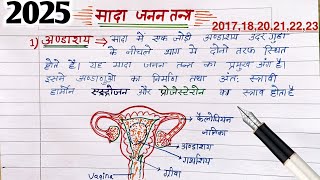 2025
मादा जनन तन्त्र
2017,18,20,21,22,23
1) अण्डाशय → मादा में एक जोड़ी अण्डाशय उदर गुहा
के नीचले भाग में दोनों तरफ स्थित
होते हैं। यह मादा जनन तन्त्र का प्रमुख अंग है।
इसमें अण्डाणुओं का निर्माण तथा अंतः स्त्रावी
हार्मोन एस्ट्रोजन और प्रोजेस्टेरोन का स्त्राव होता है
फैलोपियन
नलिका
अण्डाशय
गर्भाशय
ग्रीवा
vagina